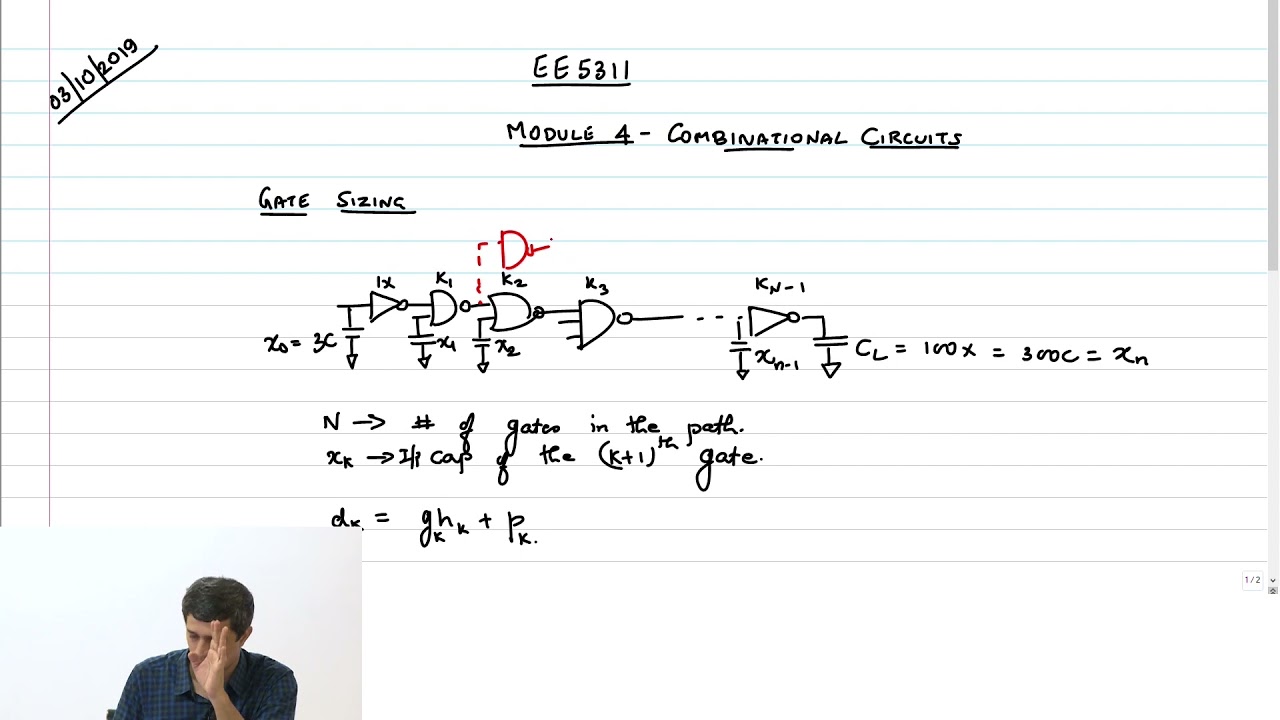 03/10/2019
EE5311
MODULE 4 - COMBINATIONAL CIRCUITS
GATE SIZING
1x K1 K2 K3 KN-1
x0 = 3C x1 x2 xn-1 CL = 100x = 300C = xn
N → # of gates in the path.
xk → I/p cap of the (k+1)th gate.
dk = gkhk + pk.
1/2